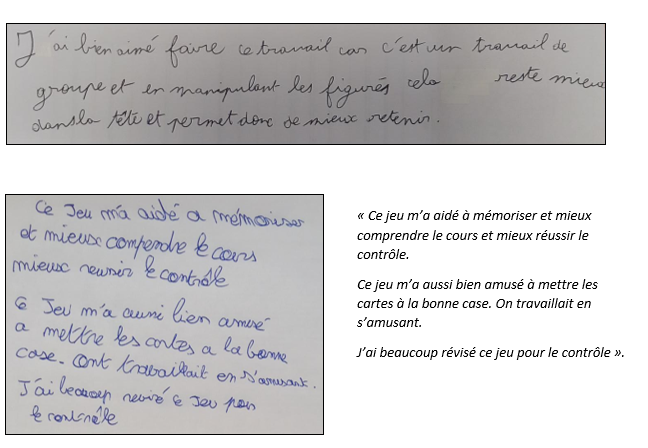 J'ai bien aimé faire ce travail car c'est un travail de
groupe et en manipulant les figurés cela reste mieux
dans la tête et permet donc de mieux retenir.
Ce Jeu m'a aidé a mémoriser
et mieux comprendre le cours
mieux reussir le contrôle
Ce Jeu m'a aussi bien amusé
a mettre les cartes a la bonne
case. ont travaillait en s'amusant.
J'ai beaucoup revisé ce Jeu pour
le contrôle
« Ce jeu m'a aidé à mémoriser et mieux
comprendre le cours et mieux réussir le
contrôle.
Ce jeu m'a aussi bien amusé à mettre les
cartes à la bonne case. On travaillait en
s'amusant.
J'ai beaucoup révisé ce jeu pour le contrôle ».